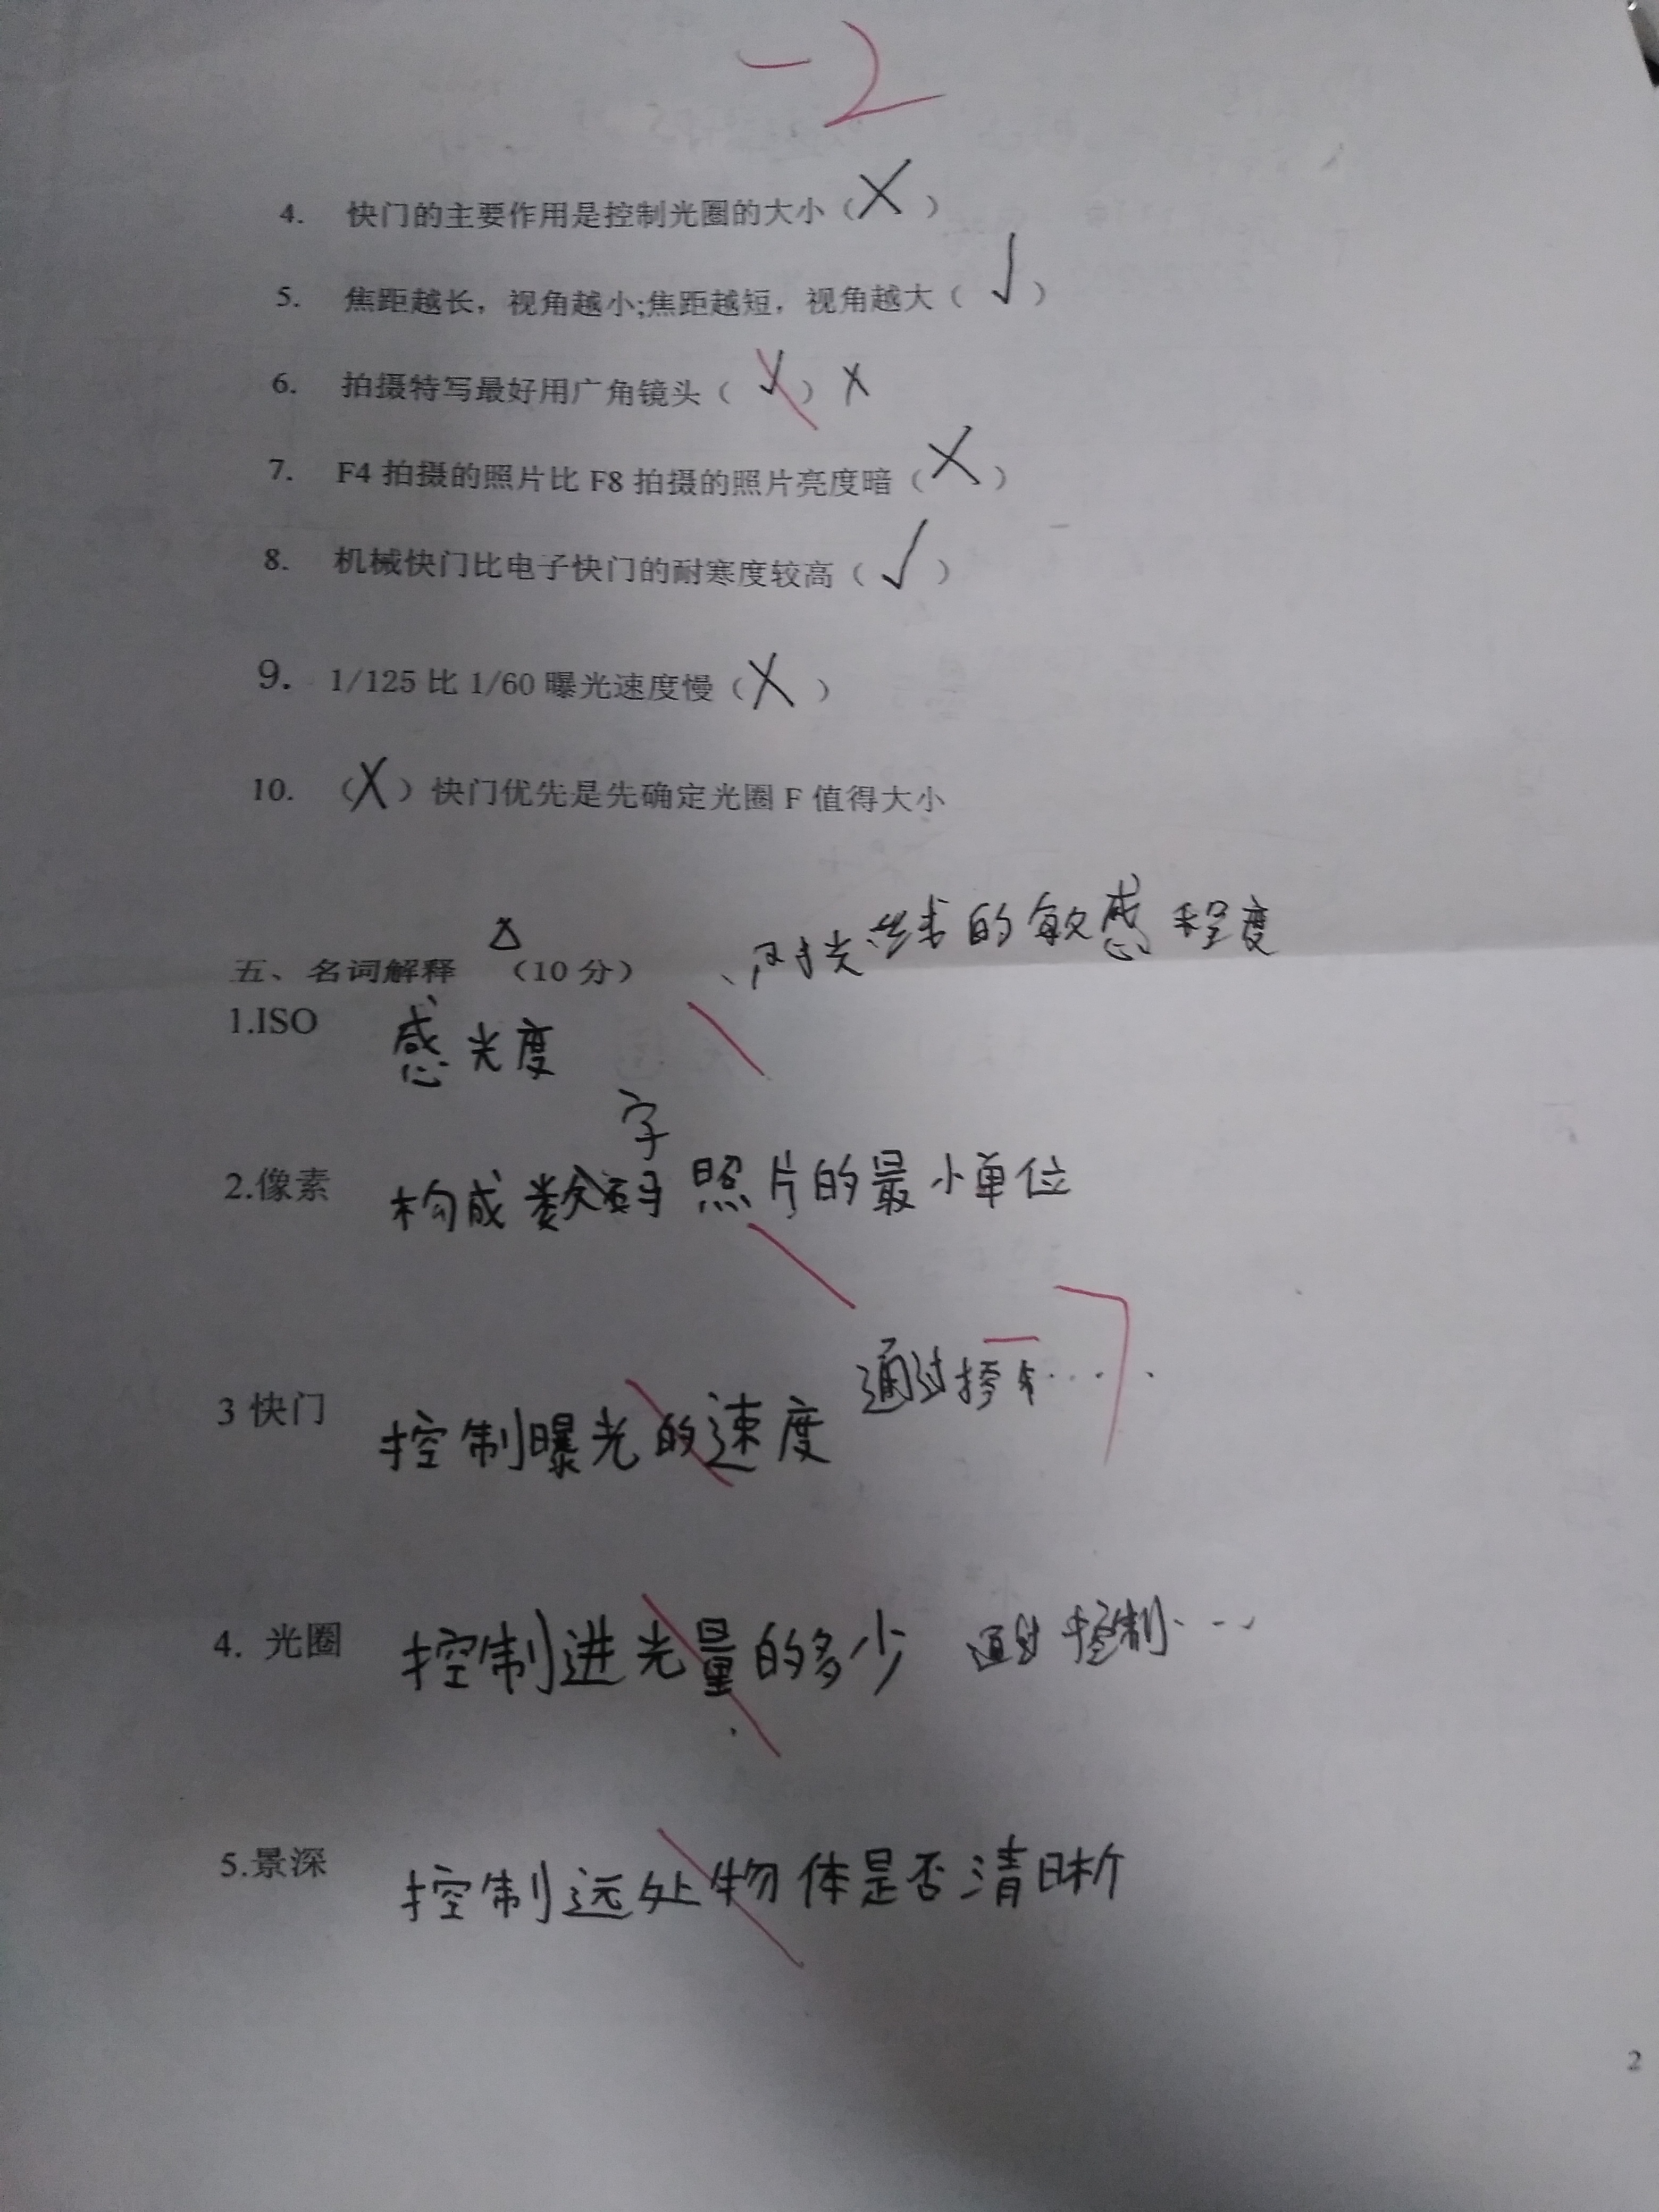 -2
4. 快门的主要作用是控制光圈的大小（X）
5. 焦距越长，视角越小;焦距越短，视角越大（√）
6. 拍摄特写最好用广角镜头（√）X
7. F4 拍摄的照片比 F8 拍摄的照片亮度暗（X）
8. 机械快门比电子快门的耐寒度较高（√）
9. 1/125 比 1/60 曝光速度慢（X）
10. （X）快门优先是先确定光圈 F 值得大小
五、名词解释 （10 分）
、对光线的敏感程度
1.ISO 感光度
字
2.像素 构成数码照片的最小单位
通过
3 快门 控制曝光的速度
4. 光圈 控制进光量的多少 通过控制……
5.景深 控制远处物体是否清晰
2